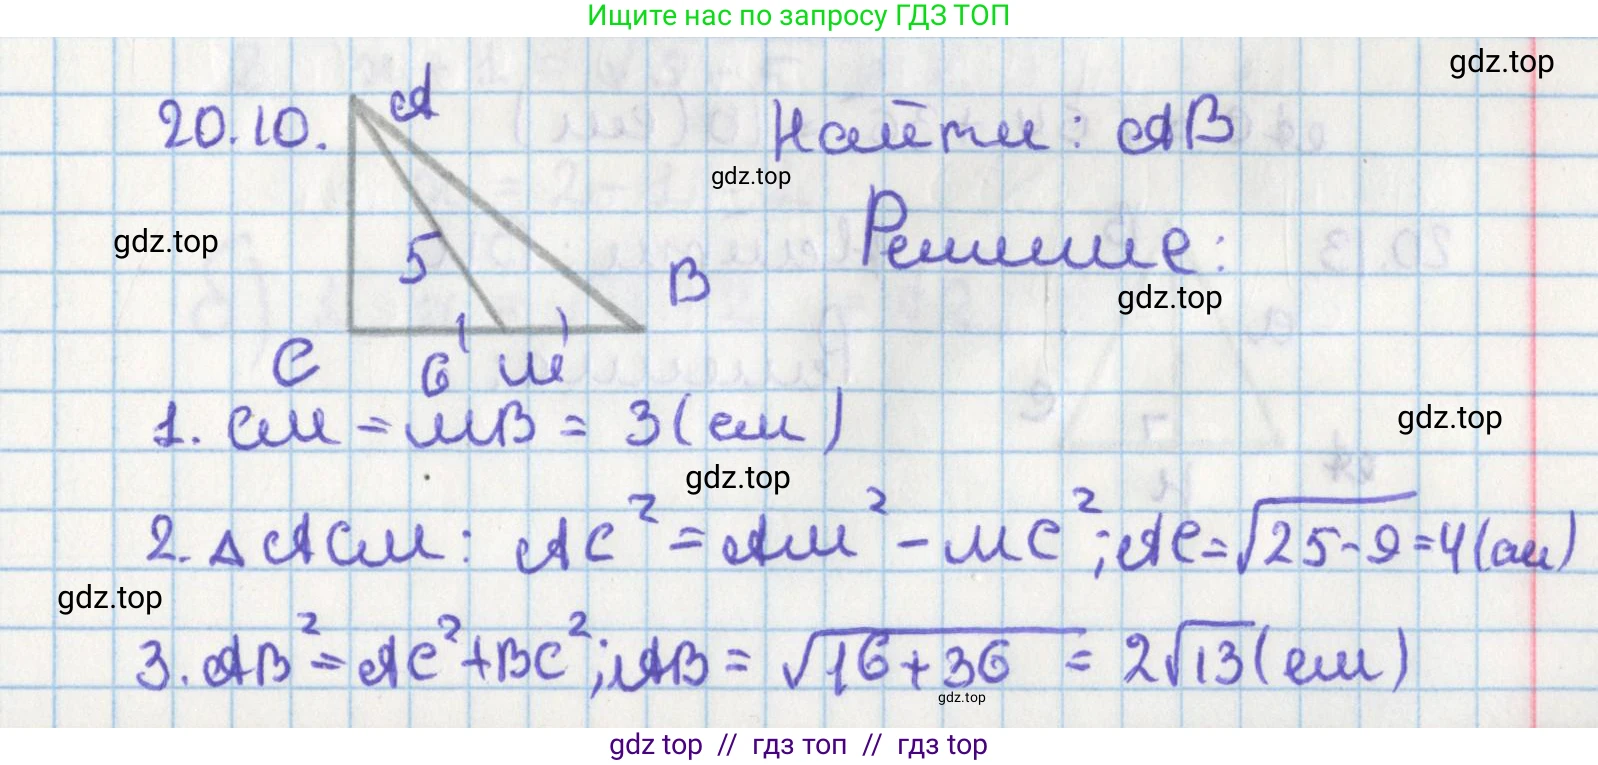 Ищите нас по запросу ГДЗ ТОП
gdz.top
20.10.
A
Найти: AB
gdz.top
gdz.top
Решение:
5
B
gdz.top
C
6
M
1. CM = MB = 3 (см)
gdz.top
gdz.top
2. △ACM: AC² = AM² - MC²; AC = √25-9 = 4 (см)
gdz.top
3. AB² = AC² + BC²; AB = √16+36 = 2√13 (см)
gdz.top
gdz top // гдз топ // gdz top